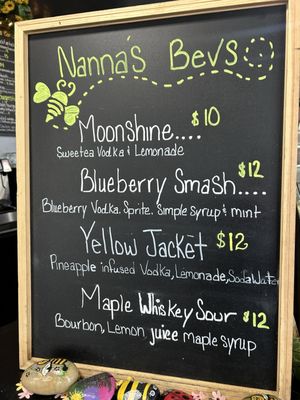 Nanna's Bevs
Moonshine.... $10
Sweetea Vodka & Lemonade
$12
Blueberry Smash....
Blueberry Vodka. Sprite. Simple syrup & mint
Yellow Jacket $12
Pineapple infused Vodka, Lemonade, Soda Water
Maple Whiskey Sour $12
Bourbon, Lemon juice maple syrup